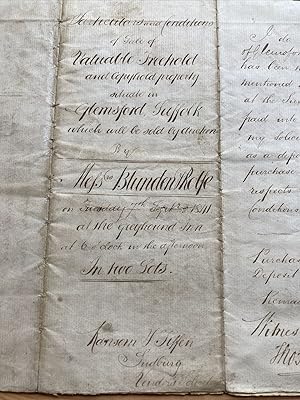 Particulars and Conditions
of Sale of
Valuable Freehold
and Copyhold property
situate in
Glemsford Suffolk
which will be sold by Auction
By
Messrs Blunden & Rolfe
on Tuesday
at the Greyhound Inn
at 6 o'clock in the afternoon
In two Lots.
Ransom &
Sudbury
Vendors
I do
has been
mentioned
at the
paid into
my Solic
as a dep
purchase
respects
Conditions
Purchas
Deposit
Witnes